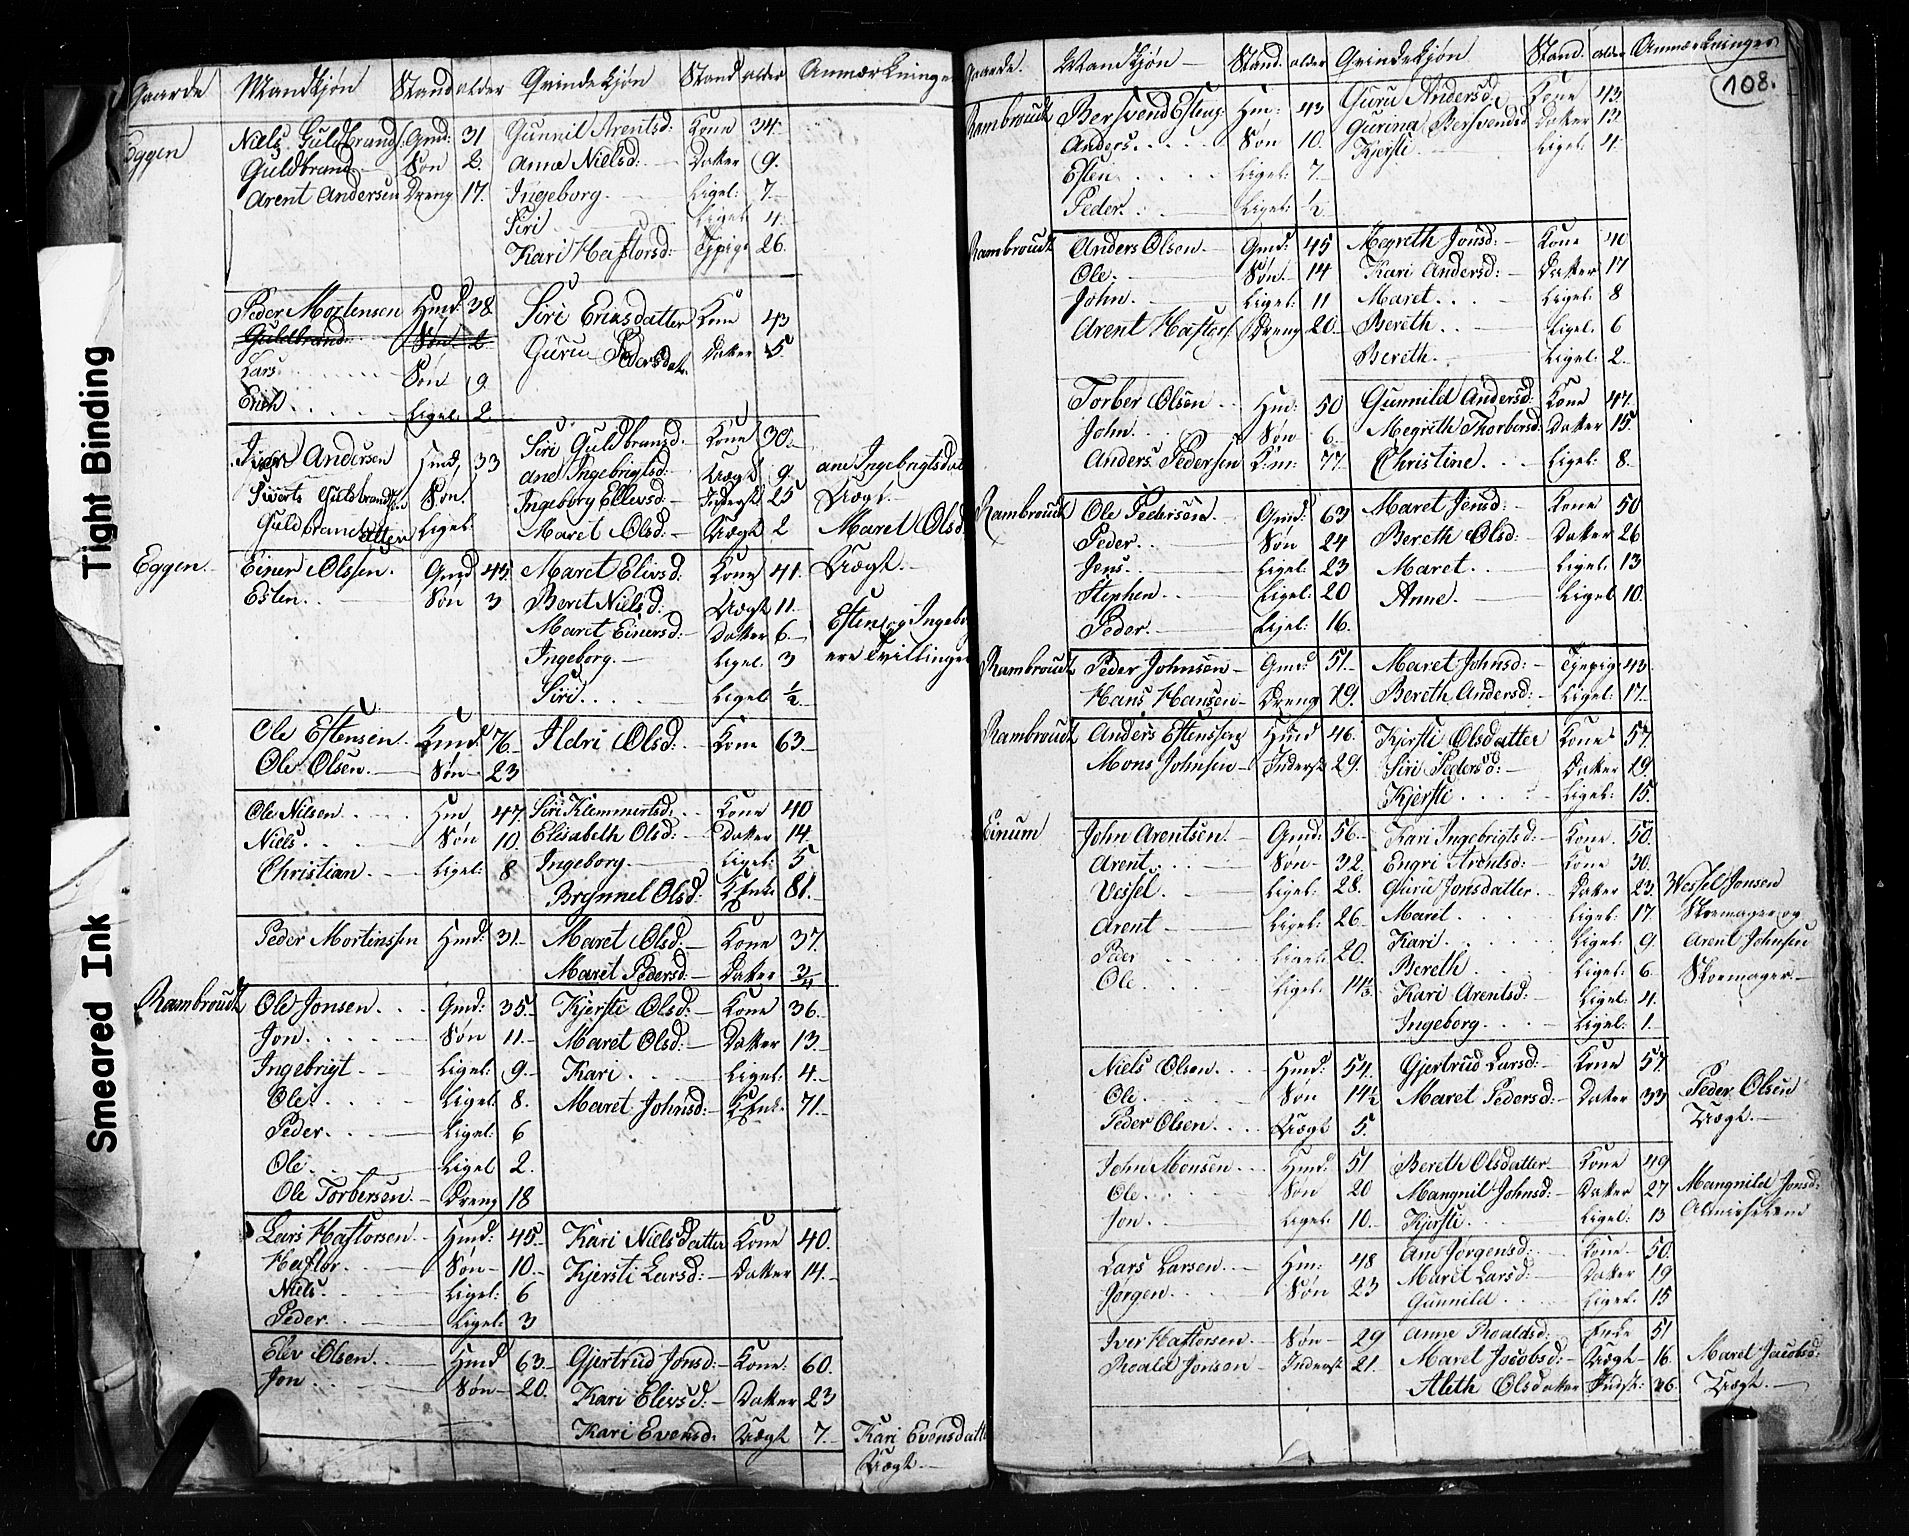 Gaarde Mandkjøn Stand alder Qvindekjøn Stand alder Anmærkninger
Eggen Niels Guldbrands: Gmd: 31 Gunnil Arentsd: Kone 34.
Guldbrand Søn 2. Anne Nielsd: Datter 9.
Arent Andersen Dreng 17. Ingeborg Ligel: 7
Siri Ligel 4
Kari Haftorsd: Tjpige 26.
Peder Mortensen Hmd: 38 Siri Ericsdatter Kone 43
Guldbrand Søn 2 Guru Pedersdat. Datter 5.
Lars Søn 9
Erich Ligel: 2.
Iver Andersen Hmd 33 Siri Guldbransd. Kone 30.
Siverts Guldbrandsen Søn. ane Ingebrigtsd: Lægt 9 ane Ingebrigtsdat
Guldbrand Ligel. Ingebory Ellevsd: Inderst 25 Lægt.
Maret Olsd: Lægt 2 Maret Olsd
Eggen Einer Olssen. Gmd 45. Maret Elivsd. Kone 41. Lægt.
Esten Søn 3 Berit Nielsd: Lægt 11.
Maret Einersd: Datter 6 Esten og Ingebor
Ingeborg. Ligel: 3 ere Tvillinger
Siri Ligel ½
Ole Estensen Kmd: 76 Ildri Olsd: Kone 63
Ole Olsen. Søn 23
Ole Nilsen Hm 47. Siri Klemmertsd: Kone 40
Niels Søn 10. Elisabeth Olsd: Datter 14.
Christian Ligel: 8 Ingeborg. Ligel: 5
Brynnel Olsd: KEnke 81.
Peder Mortenssen Hmd: 31 Maret Olsd. Kone 37.
Maret Pedersd: Datter ¾
Rambroudt Ole Jonsen. Gmd: 35. Kjersti Olsd: Kone 36
Jon Søn 11. Maret Olsd: Datter 13.
Ingebrigt Ligel: 9 Kari Ligel: 4
Ole Ligel: 8. Maret Johnsd: KEnke 71.
Peder. Ligel: 6
Ole Ligel 2.
Ole Torbersen. Dreng 18
Lars Haftorsen Hmd: 45 Kari Nielsdatter Kone 40.
Haftor Søn 10 Kjersti Larsd: Datter 14.
Niels Ligel: 6
Peder Ligel: 3
Elev Olsen Hmd 63 Gjertrud Jonsd: Kone: 60.
Jon Søn 20. Kari Elevsd: Datter 23
Kari Evensd: Lægt 7. Kari Evensdatter
Lægt
Gaarde. Mandkjøn Stand. alder Qvindekjøn Stand. alder Anmærkninger
108.
Rambroudt Bersvend Estens: Hm: 43 Guru Andersd: Kone 43.
Anders Søn 10. Gurina Bersvendsd Datter 12
Esten Ligel: 7 Kjersti Ligel: 4
Peder Ligel: ½
Rambroudt Anders Olsen Gmd: 45 Megreth Jonsd: Kone 40
Ole Søn 14 Kari Andersd: Datter 17
John Ligel: 11 Maret Ligel: 8
Arent Haftors. Dreng 20 Bereth Ligel: 6
Bereth. Ligel: 2.
Torber Olsen Hmd: 50 Gunnild Andersd: Kone 47.
John Søn 6 Megreth Thorbersd: Datter 15.
Anders Pedersen 77. Christine. Ligel: 8.
Rambroudt Ole Pedersen Gmd: 63 Maret Jensd: Kone 50
Peder Søn 24 Bereth Olsd: Datter 26
Jens Ligel: 23 Maret Ligel: 13
Stephen Ligel: 20 Anne Ligel 10.
Peder. Ligel: 16.
Rambroudt Peder Johnsen Gmd: 51. Maret Johnsd: Tjepige 43
Hans Hansen Dreng 19. Bereth Andersd: Ligel: 17.
Rambroudt Anders Estenssen Hmd 46. Kjersti Olsdatter Kone 57.
Mons Johnsen Inderst 29. Siri Pedersd: Datter 19.
Kjersti Ligel: 15.
Einum John Arentsen. Gmd: 56 Kari Ingebrigtsd: Kone 50.
Arent Søn 32. Engri Arentsd: Kone 30.
Vessel Ligel: 28. Guru Jonsdatter Datter 23. Wessel Jonsen
Arent Ligel: 26 Marit Ligel: 17. Skoemager og
Peder Ligel: 20. Kari Ligel: 9. Arent Johnsen
Ole Ligel: 14½ Bereth Ligel: 6. Skoemager
Kari Arentsd: Ligel: 4.
Ingeborg Ligel: 1
Niels Olsen Hmd: 54. Gjertrud Larsd: Kone 57.
Ole Søn 14½ Maret Pedersd: Datter 33 Peder Olsen
Peder Olsen Lægt 5. Lægt.
John Monsen Hmd: 51 Bereth Olsdatter Kone 49
Ole Søn 20 Mangnil Johnsd: Datter 27 Mangnild Jonsd:
Jon Ligel: 10. Kjersti Ligel: 13 Almisselem
Lars Larsen Hm: 48 Ane Jørgensd: Kone 50.
Jørgen Søn 23 Maret Larsd: Datter 19
Gunnild Ligel: 15
Iver Haftorsen Søn 29 Anne Roaldsd: Enke 51
Roald Jonsen Inderst 21. Maret Jacobsd: Lægt 16. Maret Jacobsd:
Aleth Olsdatter Indst: 26. Lægt.
Tight Binding
Smeared Ink